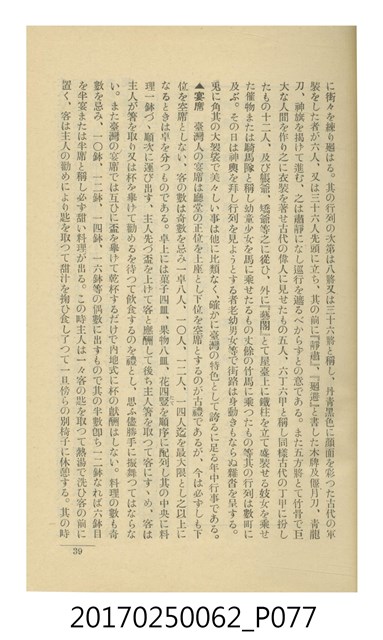 に街々を練り廻はる。其の行列の次第は八將又は三十六將と稱し、丹靑黑色に顏面を彩つた古代の軍
裝をした者が六人、又は三十六人先頭に立ち、其の前に『靜肅』、『廻避』と書した木牌及偃月刀、靑龍
刀、神旗を揭げて進む、之は肅靜になし巡行を適るべからずとの意である。また五方將とて竹骨で巨
大な人間を作り之に衣裝を著せ古代の偉人に見せたもの五人、六丁六甲と稱し同樣古代の丁甲に扮し
たもの十二人、及び脹爺、矯爺等之に從ひ、外に『藝閣』とて屋臺上に鐵柱を立て盛裝せる妓女を乘せ
た催物または騎馬隊と稱し幼童少女を馬に乘せたもの丈餘の竹馬に乘つたもの等其の行列は數町に
及ぶ。その日は神輿を拜し行列を見ようとする者老幼男女等で街路は身動きもならぬ雜沓を呈する。
兎に角其の大袈裟で美々しい事は他に比類なく、確かに臺灣の特色として誇るに足る年中行事である。
▲宴席 臺灣人の宴席は廳堂の正位を上座とし下位を空席とするのが古禮であるが、今は必ずしも下
位を空席としない、客の數は奇數を忌み一卓八人、一〇人、一二人、一四人迄を最大限とし之以上に
なるときは卓を分つものである。卓上には菓子四皿、果物八皿、花四竪を順序に配列し其の中央に料
理一鉢づゝ順次に運び出す、主人先づ盃を上げて客と應酬して後ち主人箸を取つて客にすゝめ、客は
主人が箸を取り又は杯を擧げて勸めるを待つて飮食するのを禮とし、思ふ儘勝手に振舞つてはならな
い。また臺灣の宴席では互ひに盃を擧げて乾杯するだけで內地式に杯の獻酬はしない。料理の數も奇
數を忌み、一〇鉢、一二鉢、一四鉢、一六鉢等の偶數に出すもので其の半數卽ち一二鉢なれば六鉢目
を半宴または半席と稱し必ず甜い料理が出る。この時主人は一々客の匙を取つて熱湯で洗ひ客の前に
置く、客は主人の勸めにより匙を取つて甜汁を掬ひ食し了つて一旦傍らの別椅子に休憩する。其の時
39
20170250062_P077